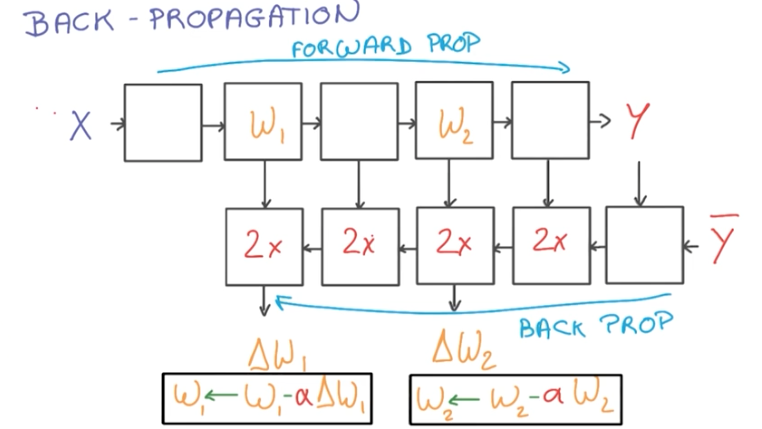 BACK - PROPAGATION
FORWARD PROP
X W₁ W₂ Y
2x 2x 2x 2x Ȳ
BACK PROP
ΔW₁ ΔW₂
W₁ ← W₁ - α ΔW₁ W₂ ← W₂ - α W₂